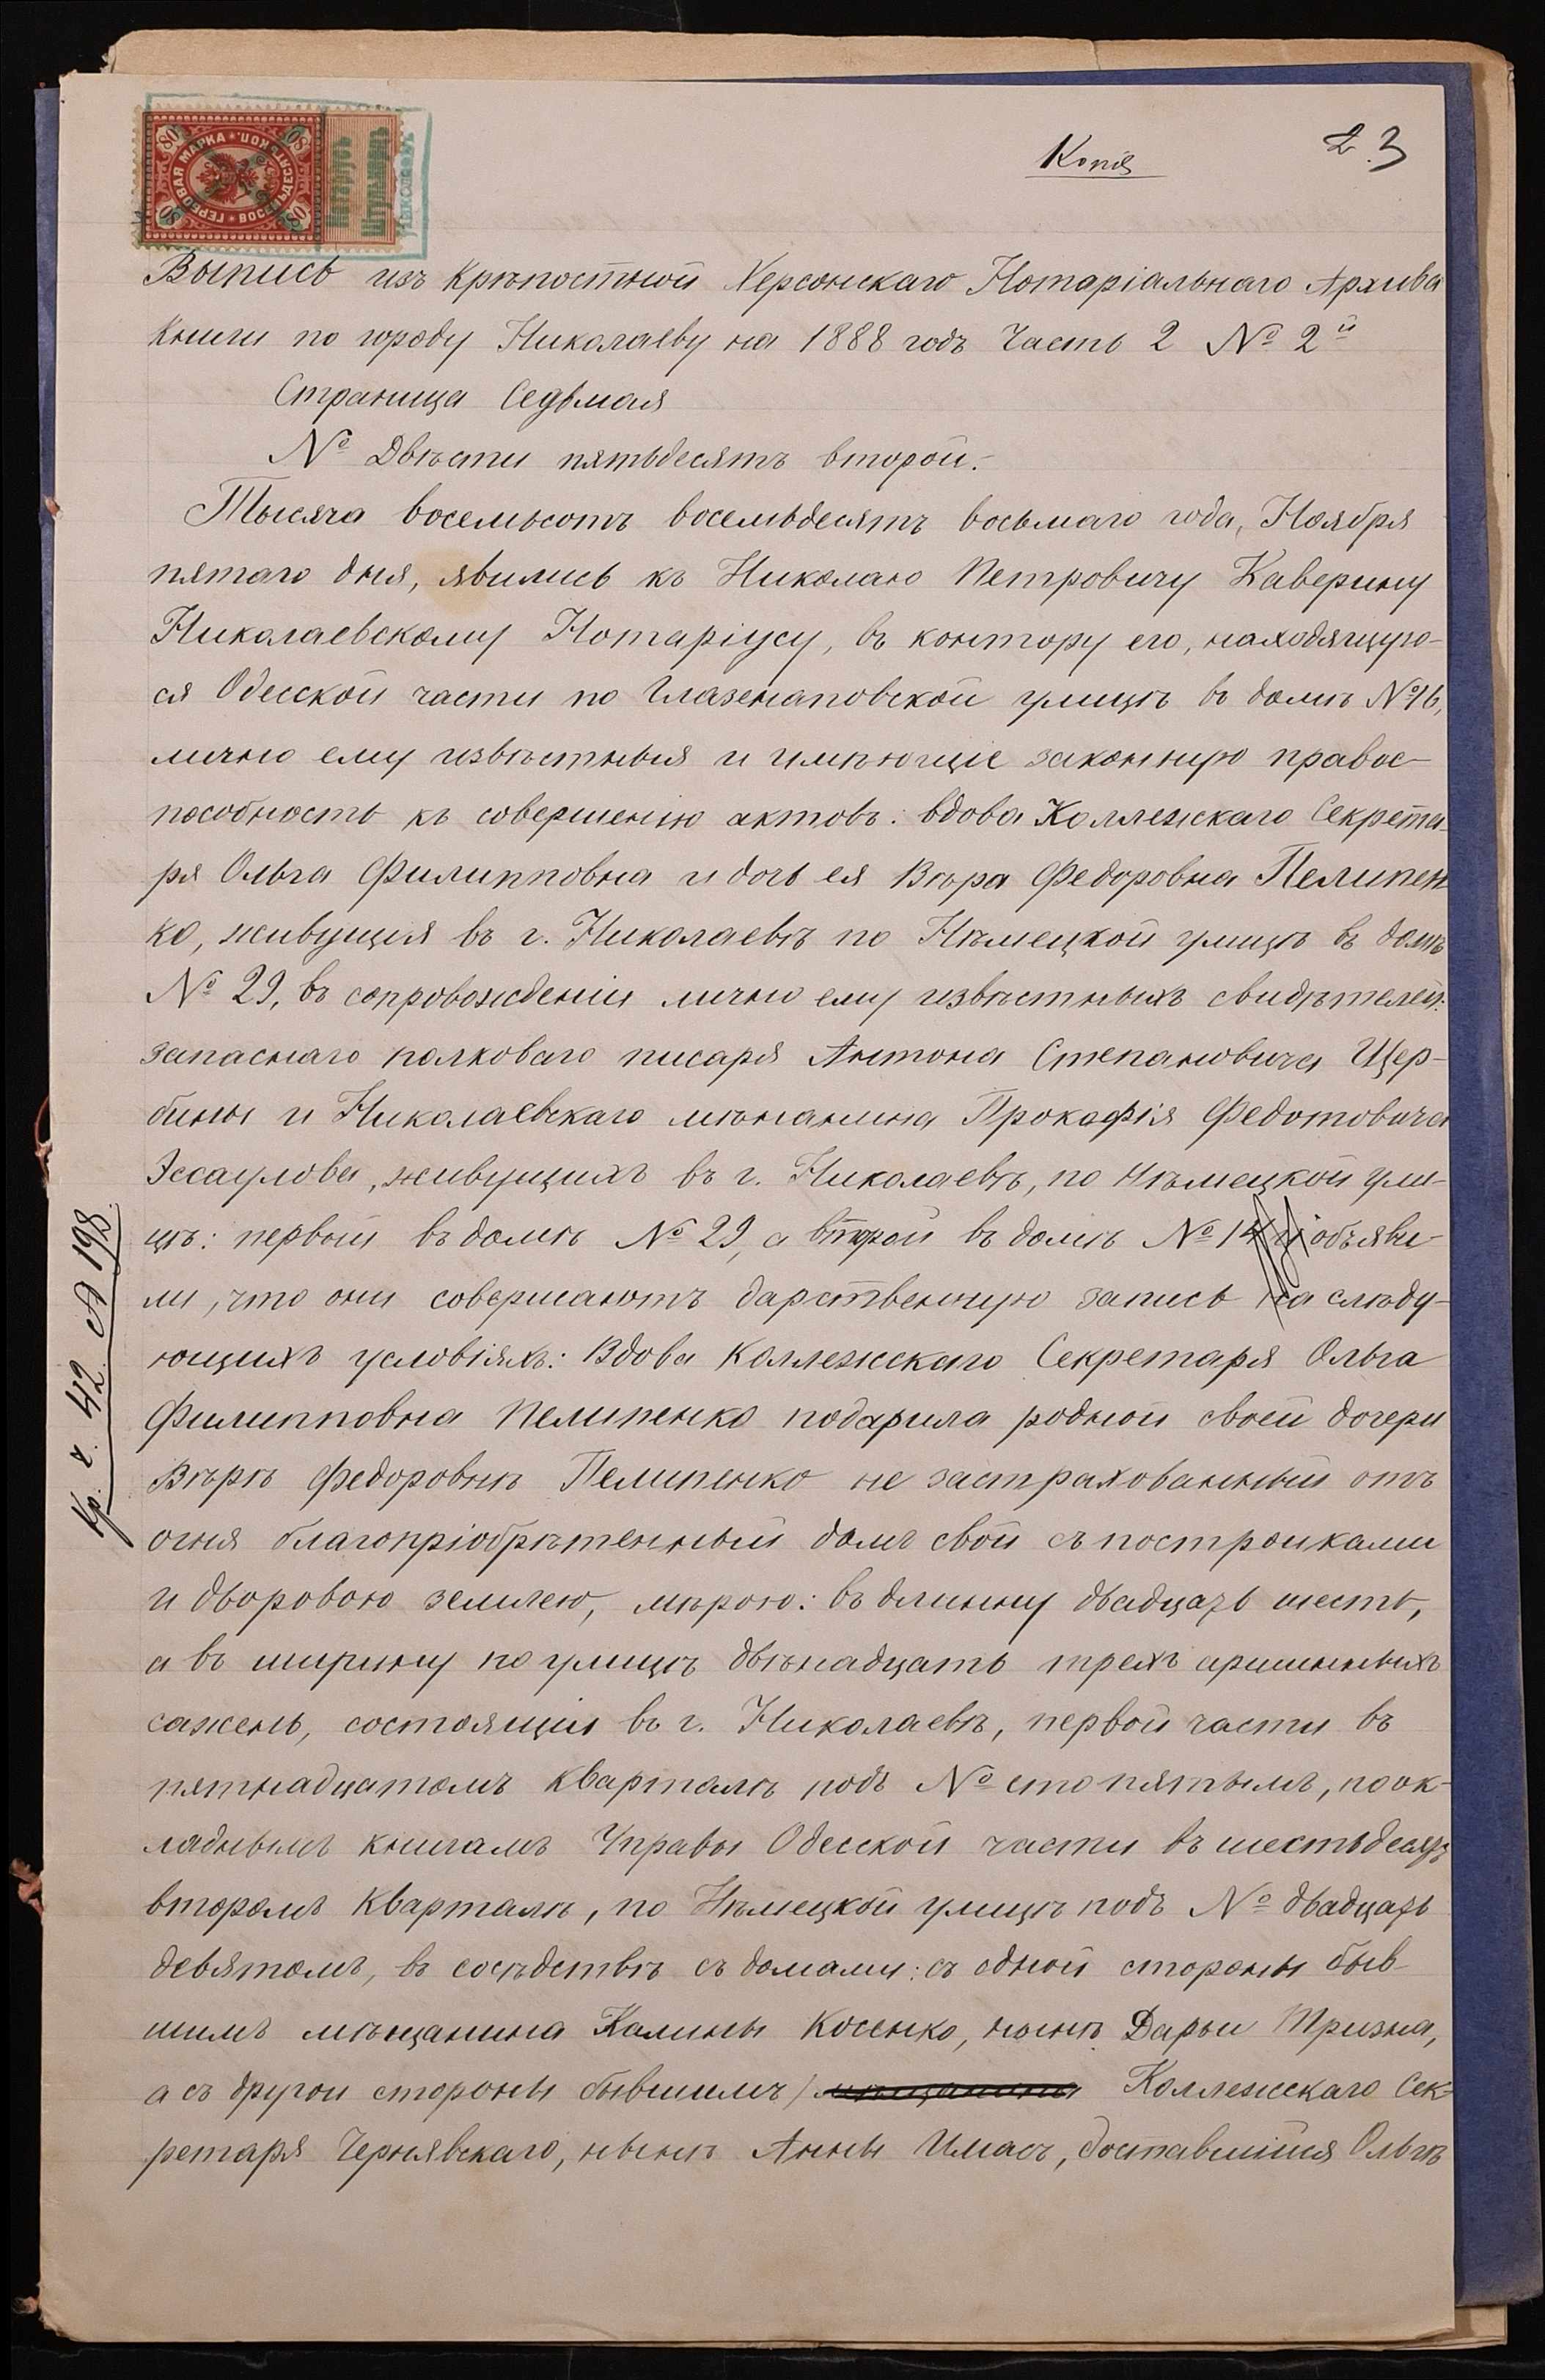 Копія
2. 3
ГЕРБОВАЯ МАРКА * ВОСЕМЬДЕСЯТЪ КОП. *
80 80 80 80
Выпись изъ Крѣпостной Херсонскаго Нотаріальнаго Архива
Книги по городу Николаеву на 1888 годъ Часть 2 № 2й
Страница Седьмая
№ Двѣсти пятьдесятъ второй.
Тысяча восемьсотъ восемьдесятъ восьмаго года, Ноября
пятаго дня, явились къ Николаю Петровичу Каверину
Николаевскому Нотаріусу, въ контору его, находящую-
ся Одесской части по Глазенаповской улицѣ въ домѣ №16,
лично ему извѣстныя и имѣющіе законную правос-
пособность къ совершенію актовъ: вдова Коллежскаго Секрета-
ря Ольга Филипповна и дочь ея Вѣра Федоровна Пелипен
ко, живущія въ г. Николаевѣ по Нѣмецкой улицѣ въ домѣ
№ 29, въ сопровожденіи лично ему извѣстныхъ свидѣтелей:
запаснаго полковаго писаря Антона Степановича Щер-
бины и Николаевскаго мѣщанина Прокофія Федотовича
Эссаулова, живущихъ въ г. Николаевѣ, по Нѣмецкой ули-
цѣ: первый въ домѣ № 29, а второй въ домѣ № 14 и объяви-
ли, что они совершаютъ дарственную запись на слѣду-
ющихъ условіяхъ: Вдова Коллежскаго Секретаря Ольга
Филипповна Пелипенко подарила родной своей дочери
Вѣрѣ Федоровнѣ Пелипенко не застрахованный отъ
огня благопріобрѣтенный домъ свой съ постройками
и дворовою землею, мѣрою: въ длинну двадцать шесть,
а въ ширину по улицѣ двѣнадцать трехъ аршинныхъ
сажень, состоящій въ г. Николаевѣ, первой части въ
пятнадцатомъ кварталѣ подъ № сто пятымъ, по ок-
ладнымъ книгамъ Управы Одесской части въ шестьдесятъ
второмъ кварталѣ, по Нѣмецкой улицѣ подъ № двадцать
девятомъ, въ сосѣдствѣ съ домами: съ одной стороны быв-
шимъ мѣщанина Калины Косенко, нынѣ Дарьи Тризна,
а съ другой стороны бывшимъ мѣщанина Коллежскаго Сек-
ретаря Чернявскаго, нынѣ Анны Имасъ, доставшійся Ольгѣ
Кр. г. 42. А 198.